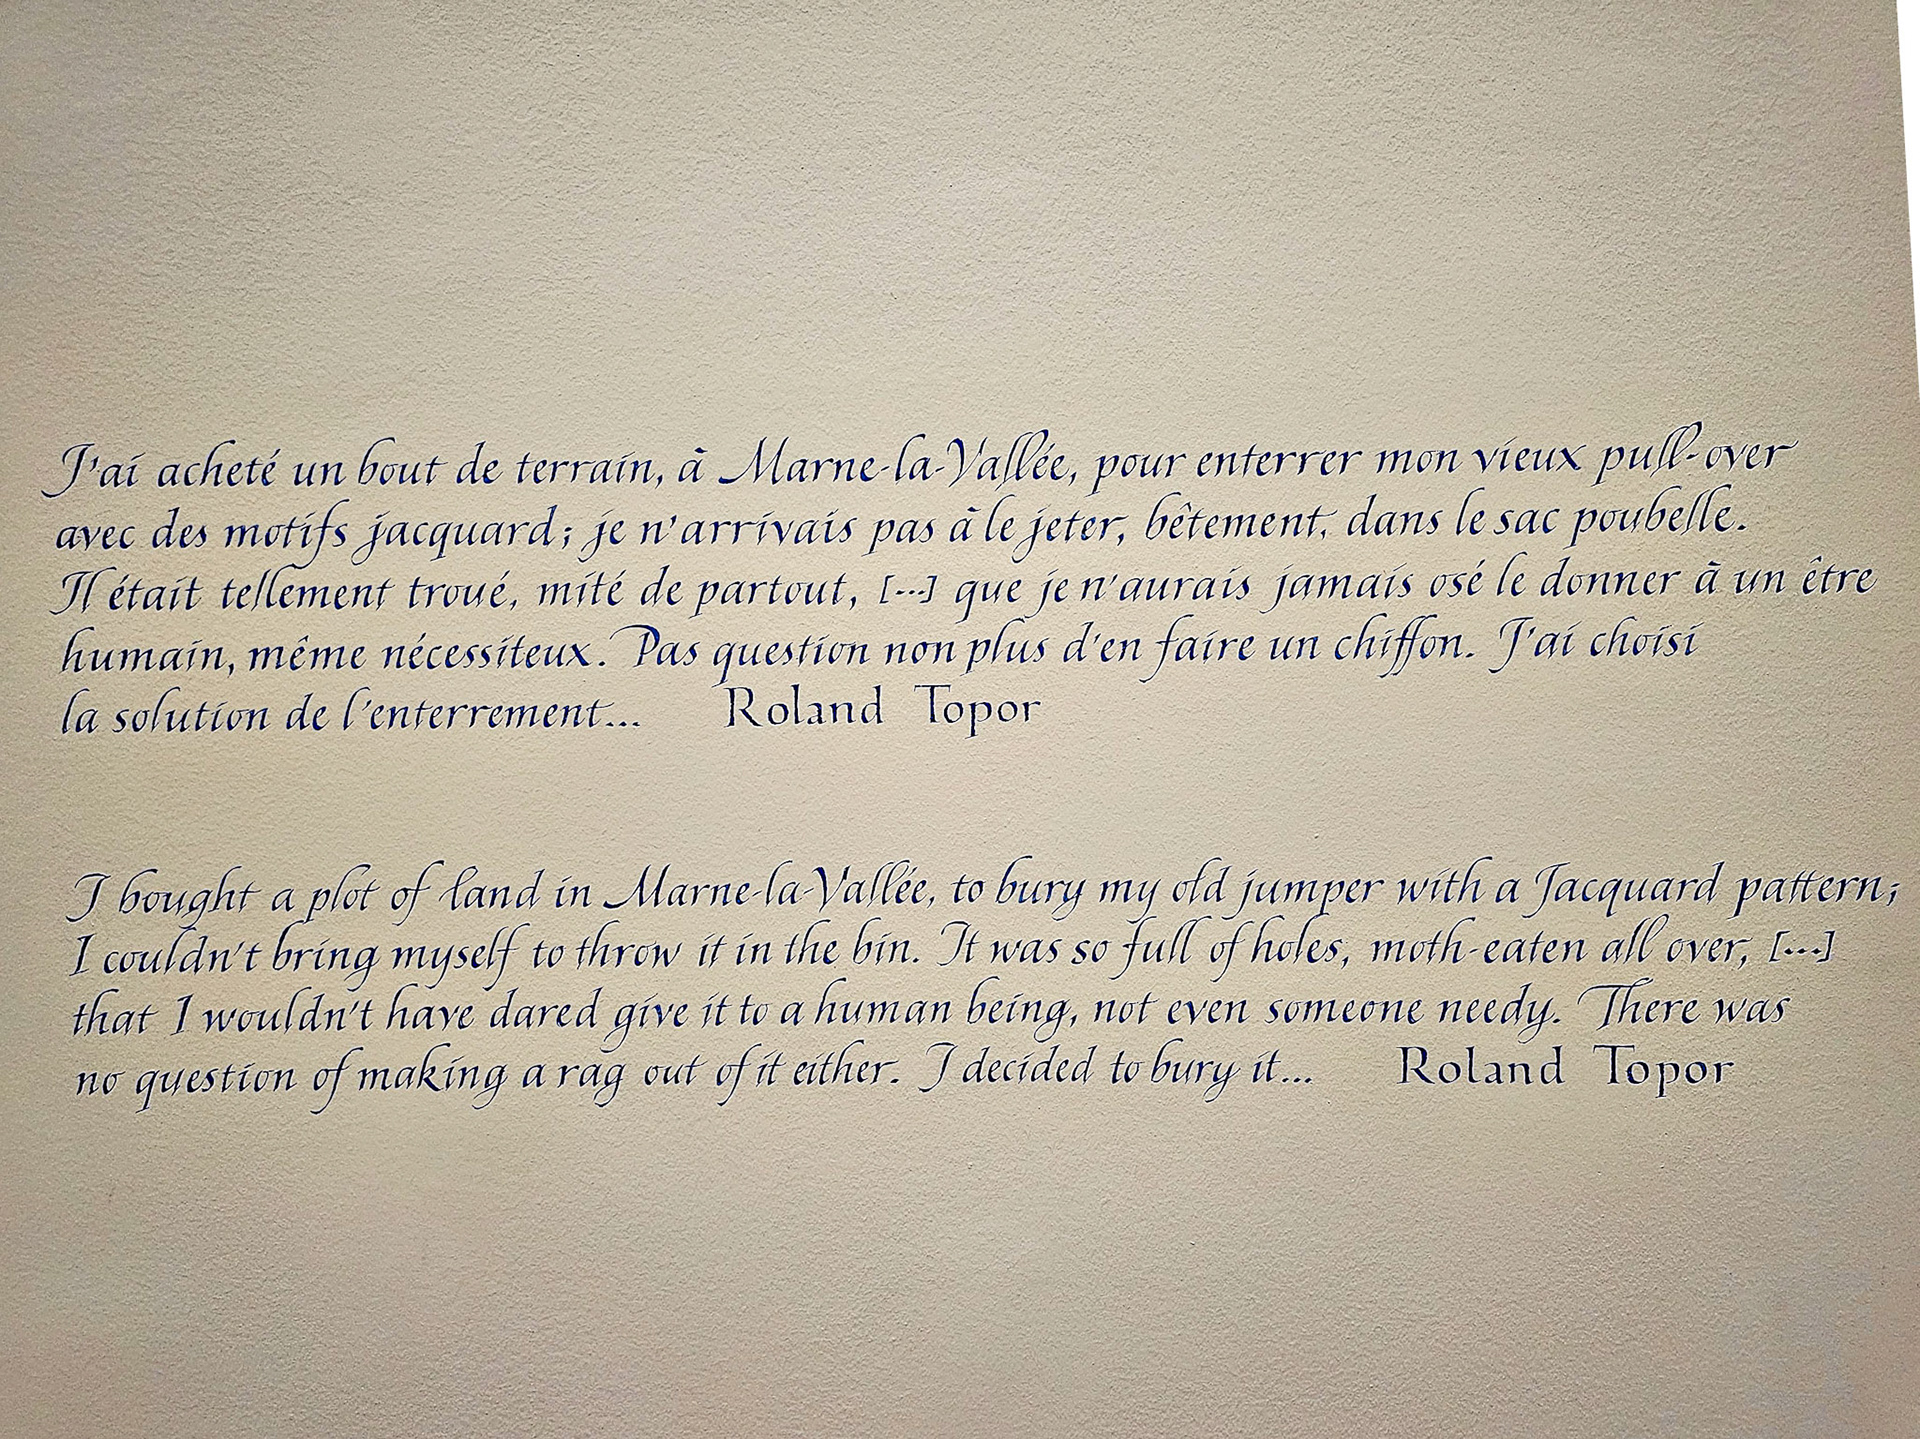 J'ai acheté un bout de terrain, à Marne-la-Vallée, pour enterrer mon vieux pull-over
avec des motifs jacquard; je n'arrivais pas à le jeter, bêtement, dans le sac poubelle.
Il était tellement troué, mité de partout, [...] que je n'aurais jamais osé le donner à un être
humain, même nécessiteux. Pas question non plus d'en faire un chiffon. J'ai choisi
la solution de l'enterrement... Roland Topor
I bought a plot of land in Marne-la-Vallée, to bury my old jumper with a Jacquard pattern;
I couldn't bring myself to throw it in the bin. It was so full of holes, moth-eaten all over, [...]
that I wouldn't have dared give it to a human being, not even someone needy. There was
no question of making a rag out of it either. I decided to bury it... Roland Topor